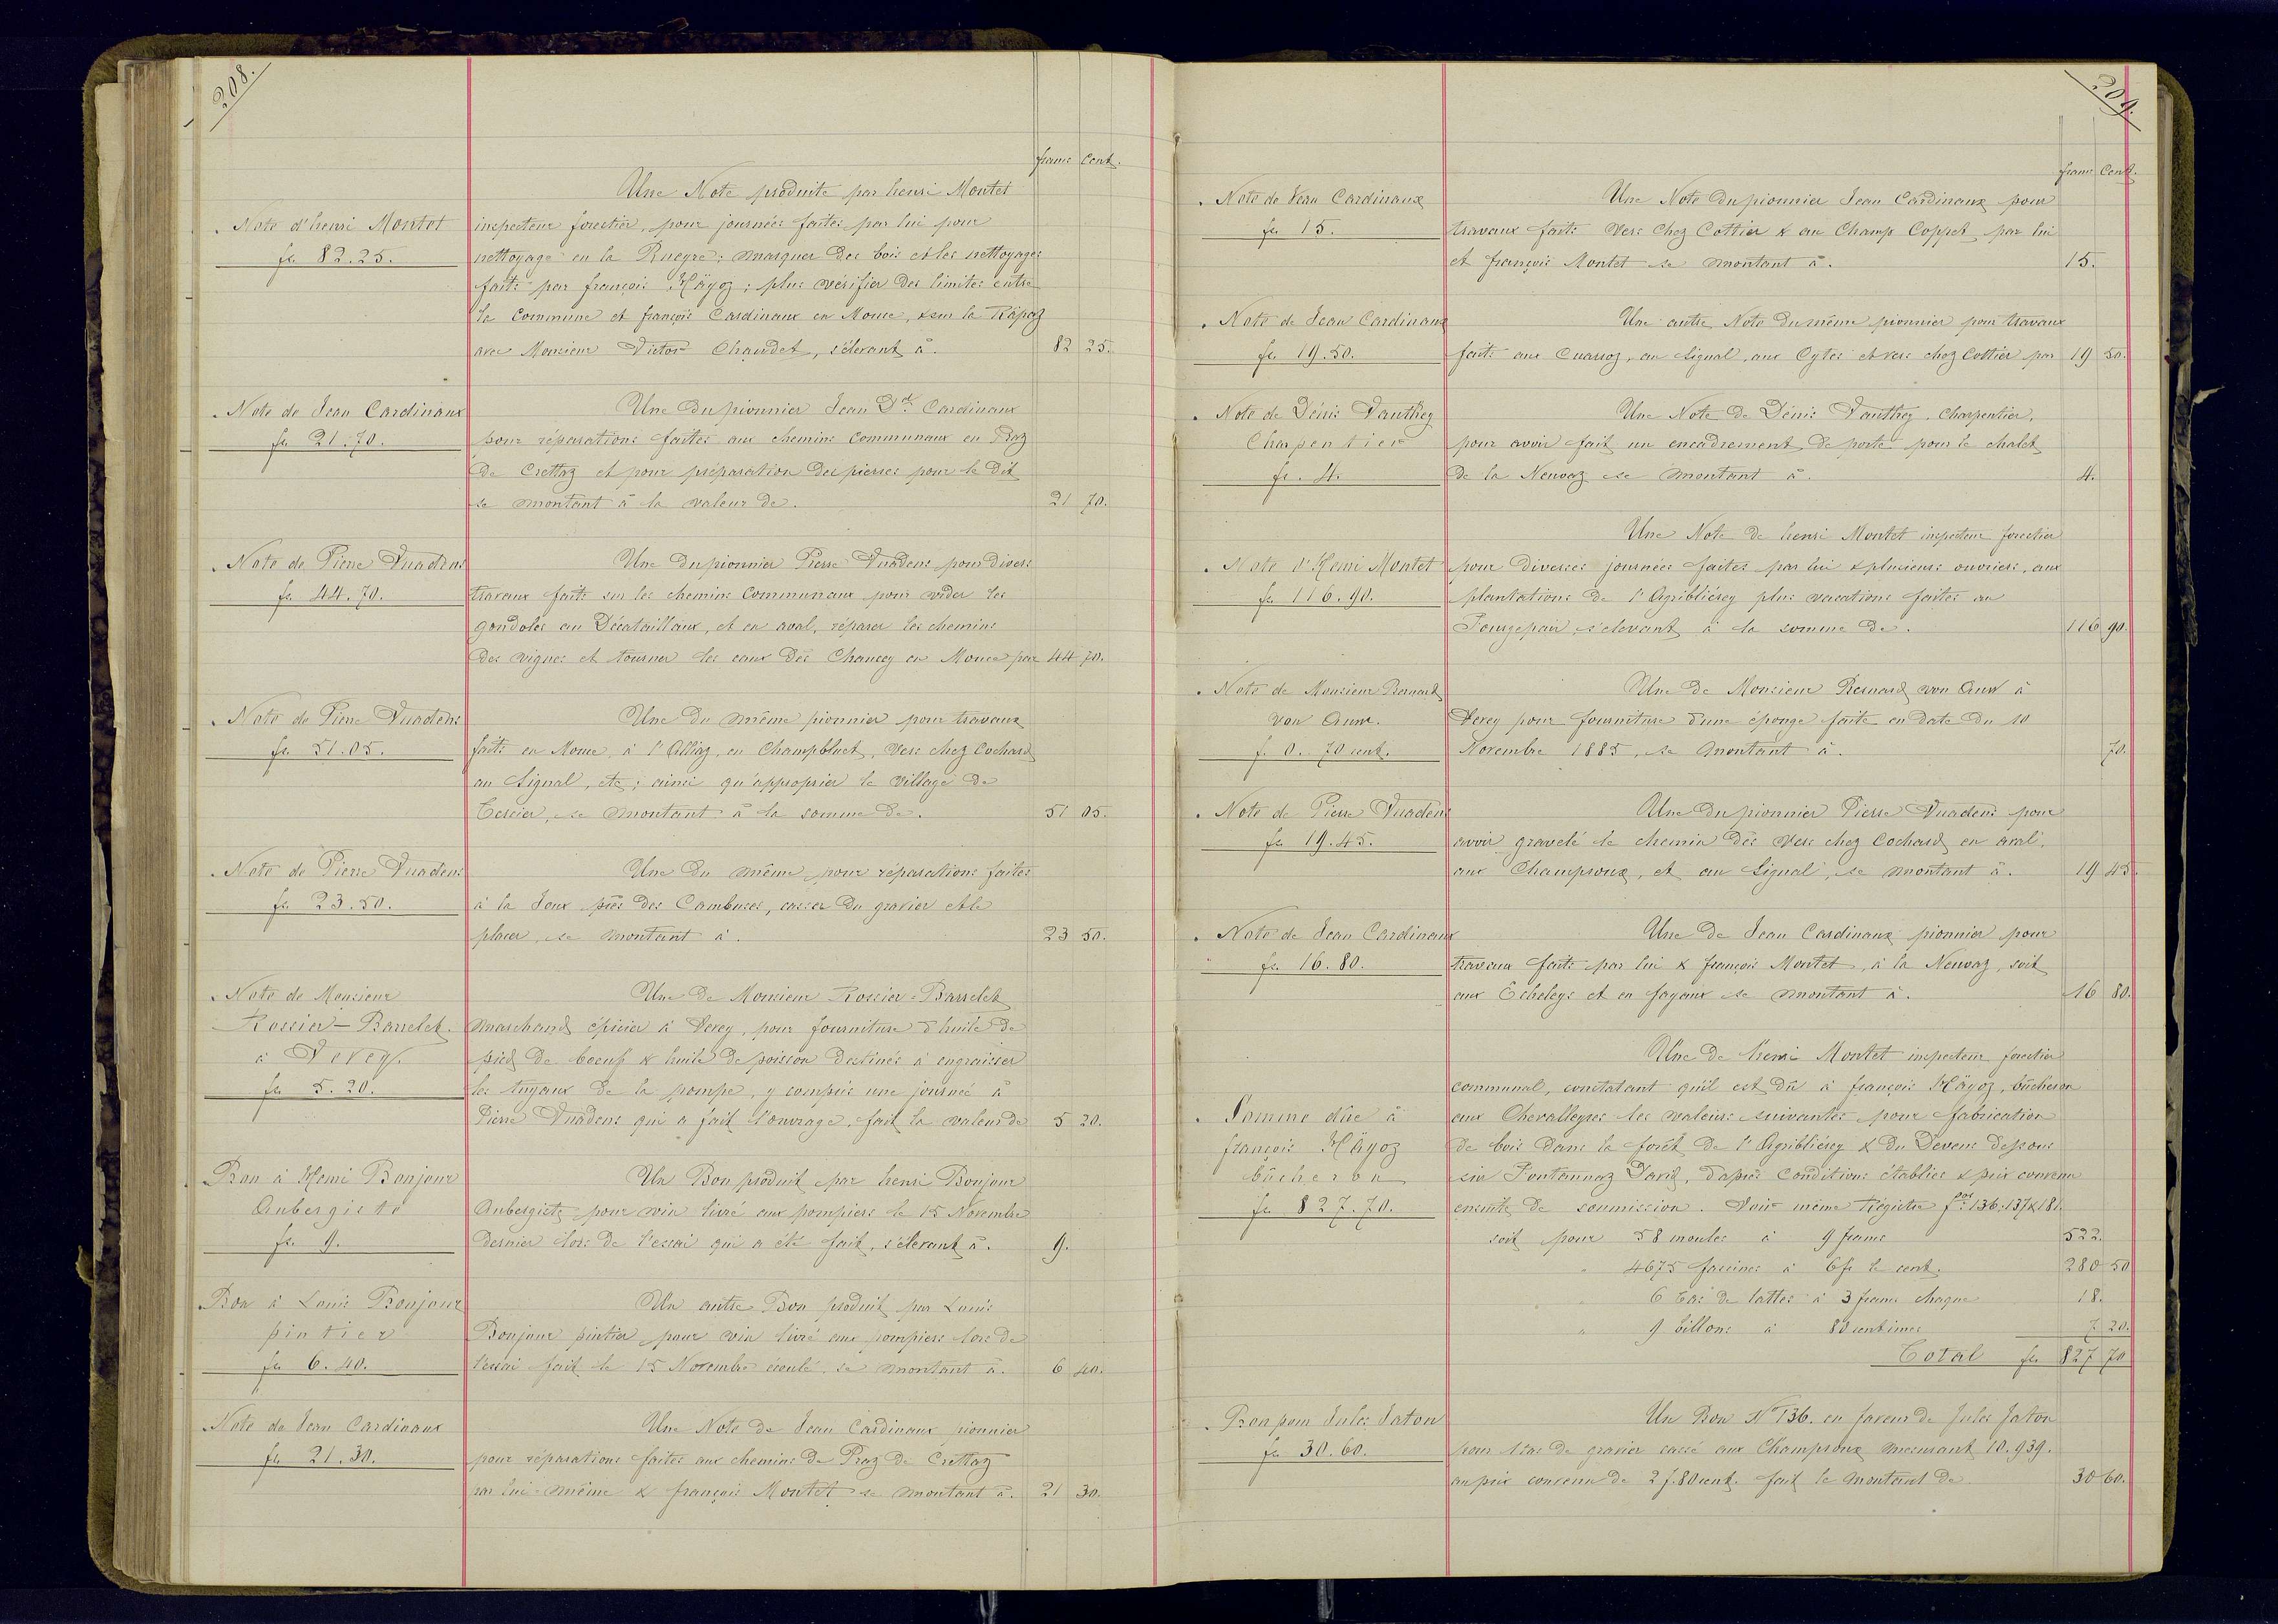 208.
franc Cent.
Note d'henri Montet
fr. 82.25.
Une Note produite par henri Montet
inspecteur forestier, pour journées faites par lui pour
nettoyage en la Rueyre; marquer des bois et les nettoyages
faits par françois Häyoz; plus vérifier des limites entre
la Commune et françois Cardinaux en Mouce, & sur la Räpaz
avec Monsieur Victor Chaudet, s'élevant à. 82 25.
Note de Jean Cardinaux
fr. 21.70.
Une du pionnier Jean Dd. Cardinaux
pour réparations faites aux chemins communaux en Praz
de Crettaz et pour préparation des pierres pour le dit
se montant à la valeur de. 21 70.
Note de Pierre Vuadens
fr. 44.70.
Une du pionnier Pierre Vuadens pour divers
travaux faits sur les chemins communaux pour vider les
gondoles au Décataillaux, et en aval, réparer les chemins
des vignes et tourner les eaux dès Chaucey en Mouce par 44 70.
Note de Pierre Vuadens
fr. 51.05.
Une du même pionnier pour travaux
faits en Mouce, à l'Alliaz, en Champbluet, Vers chez Cochard
au Signal, etc; ainsi qu'approprier le village de
Tercier, se montant à la somme de. 51 05.
Note de Pierre Vuadens
fr. 23.50.
Une du même pour réparations faites
à la Joux près des Cambuses, casser du gravier et le
placer, se montant à. 23 50.
Note de Monsieur
Rossier-Barrelet.
à Vevey.
fr. 5.20.
Une de Monsieur Rossier-Barrelet
marchand épicier à Vevey, pour fourniture d'huile de
pied de boeuf & huile de poisson destinés à engraisser
les tuyaux de la pompe, y compris une journée à
Pierre Vuadens qui a fait l'ouvrage, fait la valeur de 5 20.
Bon à Henri Bonjour
Aubergiste
fr. 9.
Un Bon produit par henri Bonjour
Aubergiste pour vin livré aux pompiers le 15 Novembre
dernier lors de l'essai qui a été fait, s'élevant à. 9.
Bon à Louis Bonjour
pintier
fr. 6.40.
Un autre Bon produit par Louis
Bonjour pintier pour vin livré aux pompiers lors de
l'essai fait le 15 Novembre écoulé, se montant à. 6 40.
Note de Jean Cardinaux
fr. 21.30.
Une Note de Jean Cardinaux pionnier
pour réparations faites aux chemins de Praz de Crettaz
par lui-même & françois Montet se montant à. 21 30.
209.
franc Cent.
Note de Jean Cardinaux
fr. 15.
Une Note du pionnier Jean Cardinaux pour
travaux faits Vers chez Cottier & au Champ Coppet, par lui
et françois Montet se montant à. 15.
Note de Jean Cardinaux
fr. 19.50.
Une autre Note du même pionnier pour travaux
faits aux Cuarroz, au Signal, aux Oytes et vers chez Cottier par 19 50.
Note de Dénis Vauthey
Charpentier
fr. 4.
Une Note de Dénis Vauthey, charpentier,
pour avoir fait un encadrement de porte pour le chalet
de la Neuvaz se montant à. 4.
Note d'Henri Montet
fr. 116.90.
Une Note de henri Montet inspecteur forestier
pour diverses journées faites par lui & plusieurs ouvriers, aux
plantations de l'Agribliérey plus vacations faites au
Tourgepair, s'élevant à la somme de. 116 90.
Note de Monsieur Bernard
von Auw.
f. 0.70 cent.
Une de Monsieur Bernard von Auw à
Vevey pour fourniture d'une éponge faite en date du 10
Novembre 1885, se montant à. 70.
Note de Pierre Vuadens
fr. 19.45.
Une du pionnier Pierre Vuadens pour
avoir gravelé le chemin dès Vers chez Cochard en aval,
aux Champroux, et au Signal, se montant à. 19 45.
Note de Jean Cardinaux
fr. 16.80.
Une de Jean Cardinaux pionnier pour
travaux faits par lui & françois Montet, à la Neuvaz, soit
aux Echeleys et en fayaux se montant à. 16 80.
Somme dûe à
françois Häyoz
bûcheron
fr. 827.70.
Une de henri Montet inspecteur forestier
communal, constatant qu'il est dû à françois Häyoz, bûcheron
aux Chevalleyres les valeurs suivantes pour fabrication
de bois dans la forêt de l'Agribliérey & du Devens dessous
sin Fontannaz David, d'après conditions établies & prix convenu
ensuite de soumission. Voir même régistre fos: 136.137 & 181.
soit pour 58 moules à 9 francs 522.
" 4675 fascines à 6 fr. le cent. 280 50
" 6 tas de lattes à 3 francs chaque 18.
" 9 billons à 80 centimes 7. 20.
Total fr. 827 70
Bon pour Jules Jaton
fr. 30.60.
Un Bon N° 136. en faveur de Jules Jaton
pour 1 tas de gravier cassé aux Champroux mesurant 10.939.
au prix convenu de 2 f. 80 cent. fait le montant de 30 60.